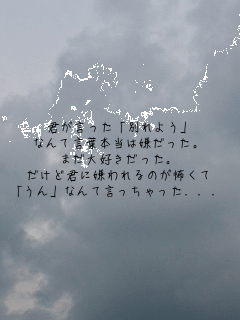 君が言った「別れよう」
なんて言葉本当は嫌だった。
まだ大好きだった。
だけど君に嫌われるのが怖くて
「うん」なんて言っちゃった...